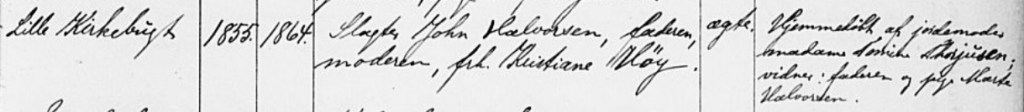 Lille Kirkebugt 1855. 1864. Slagter John Halvorsen, faderen, ægte. Hjemmedøbt af jordemoder
moderen, frk. Kristiane Høy. madame Thorjusen;
vidner: faderen og pige Marte
Halvorsen.